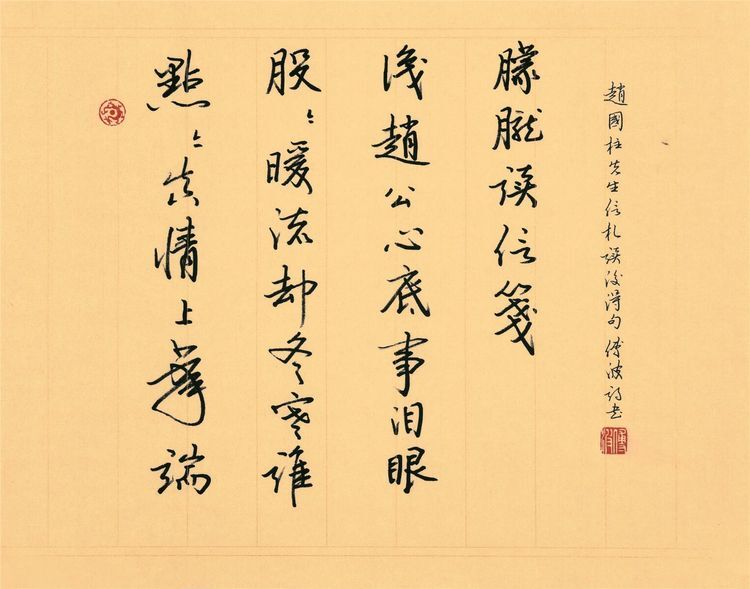 點々真情上筆端
股々暖流却冬寒誰
識趙公心底事泪眼
朦朧讀信箋
趙國柱先生信札讀後得句 傅波詩書